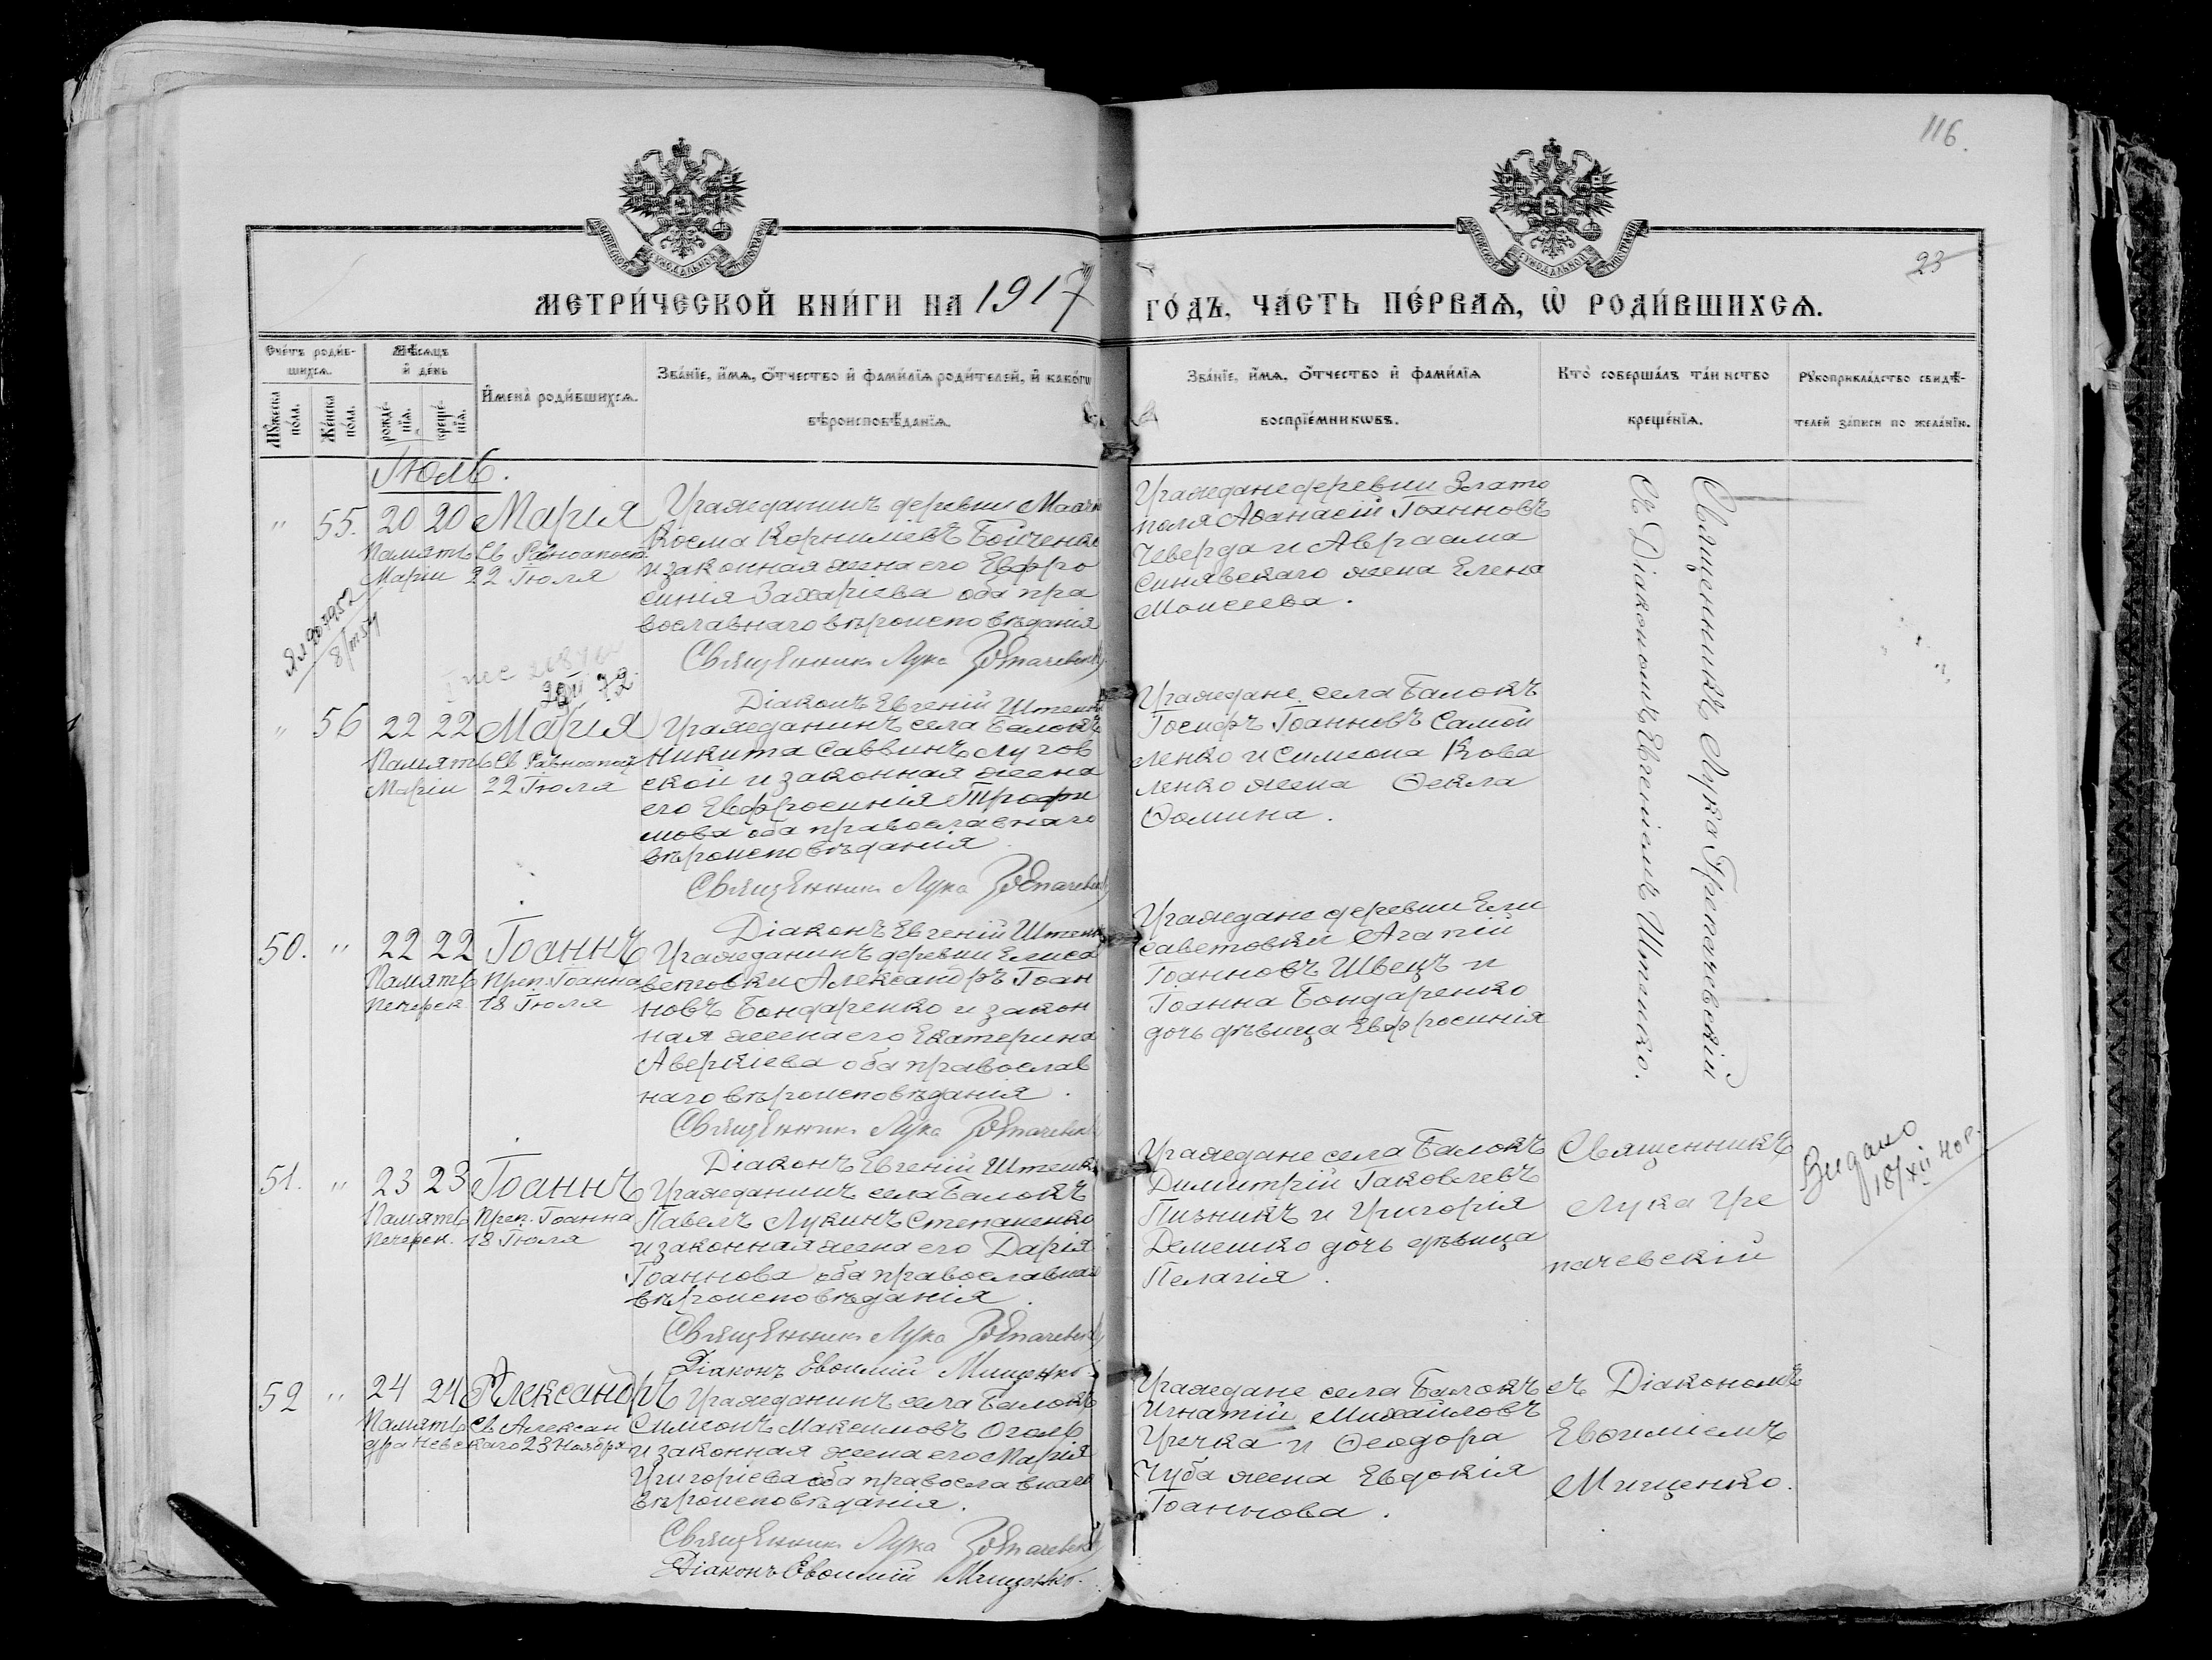 116.
23
МЕТРИ́ЧЕСКОЙ КНИ́ГИ НА 1917 ГО́ДЪ, ЧА́СТЬ ПЕ́РВАѦ, Ѡ РОДИ́ВШИХСѦ.
Сче́тъ роди́в-
шихсѧ.
Мѣ́сѧцъ
и҆ де́нь
И҆мена̀ роди́вшихсѧ.
Зва́нїе, и҆́мѧ, ѻ҆́тчество и҆ фами́лїѧ роди́телей, и҆ како́гѡ
вѣроисповѣ́данїѧ.
Мꙋ́жеска
по́ла.
Же́нска
по́ла.
рожде́-
нїѧ.
креще́-
нїѧ.
Зва́нїе, и҆́мѧ, ѻ҆́тчество и҆ фами́лїѧ
воспрїе́мникѡвъ.
Кто̀ соверша́лъ та́инство
креще́нїѧ.
Рꙋкоприкла́дство свидѣ́-
телей за́писи по жела́нїю.
Іюль.
" 55. 20 20 Марія
Память Св. Равноапост.
Маріи 22 Іюля
Гражданинъ деревни
Косма Корниліевъ Бойченко
и законная жена его Евфро
синія Захаріева оба пра
вославнаго вѣроисповѣданія
Священникъ Лука Грепачевскій
Діаконъ Евгеній Штепко
Граждане деревни Злато
поля Аѳанасій Іоанновъ
Чеверда и Авраама
Синявскаго жена Елена
Моисеева.
" 56 22 22 Марія
Память Св. Равноап.
Маріи 22 Іюля
Гражданинъ села Балокъ
Никита Саввинъ Лугов
ской и законная жена
его Евфросинія Трофи
мова оба православнаго
вѣроисповѣданія
Священникъ Лука Грепачевскій
Діаконъ Евгеній Штепко
Граждане села Балокъ
Іосифъ Іоанновъ Самой
ленко и Симеона Кова
ленко жена Ѳекла
Ѳомина.
50. " 22 22 Іоаннъ
Память Преп. Іоанна
Печерск. 18 Іюля
Гражданинъ деревни Елиса
ветовки Александръ Іоан
новъ Бондаренко и закон
ная жена его Екатерина
Аверкіева оба православ
наго вѣроисповѣданія.
Священникъ Лука Грепачевскій
Діаконъ Евгеній Штепко
Граждане деревни Ели
саветовки Агапій
Іоанновъ Швецъ и
Іоанна Бондаренко
дочь дѣвица Евфросинія
Священникъ Лука Грепачевскій
Съ Діакономъ Евгеніемъ Штепко.
51. " 23 23 Іоаннъ
Память Преп. Іоанна
Печерск. 18 Іюля
Гражданинъ села Балокъ
Павелъ Лукинъ Степаненко
и законная жена его Дарія
Іоаннова оба православнаго
вѣроисповѣданія.
Священникъ Лука Грепачевскій
Діаконъ Евѳимій Мищенко.
Граждане села Балокъ
Димитрій Іаковлевъ
Пизникъ и Григорія
Демешко дочь дѣвица
Пелагія.
Священникъ
Лука Гре
пачевскій
Видано
18/XII 40 р.
52 " 24 24 Александръ
Память Св. Алексан
дра Невскаго 23 Ноября
Гражданинъ села Балокъ
Симеонъ Максимовъ Оголь
и законная жена его Марія
Григоріева оба православнаго
вѣроисповѣданія.
Священникъ Лука Грепачевскій
Діаконъ Евѳимій Мищенко.
Граждане села Балокъ
Игнатій Михайловъ
Гречка и Ѳеодора
Чуба жена Евдокія
Іоаннова.
съ Діакономъ
Евѳиміемъ
Мищенко.